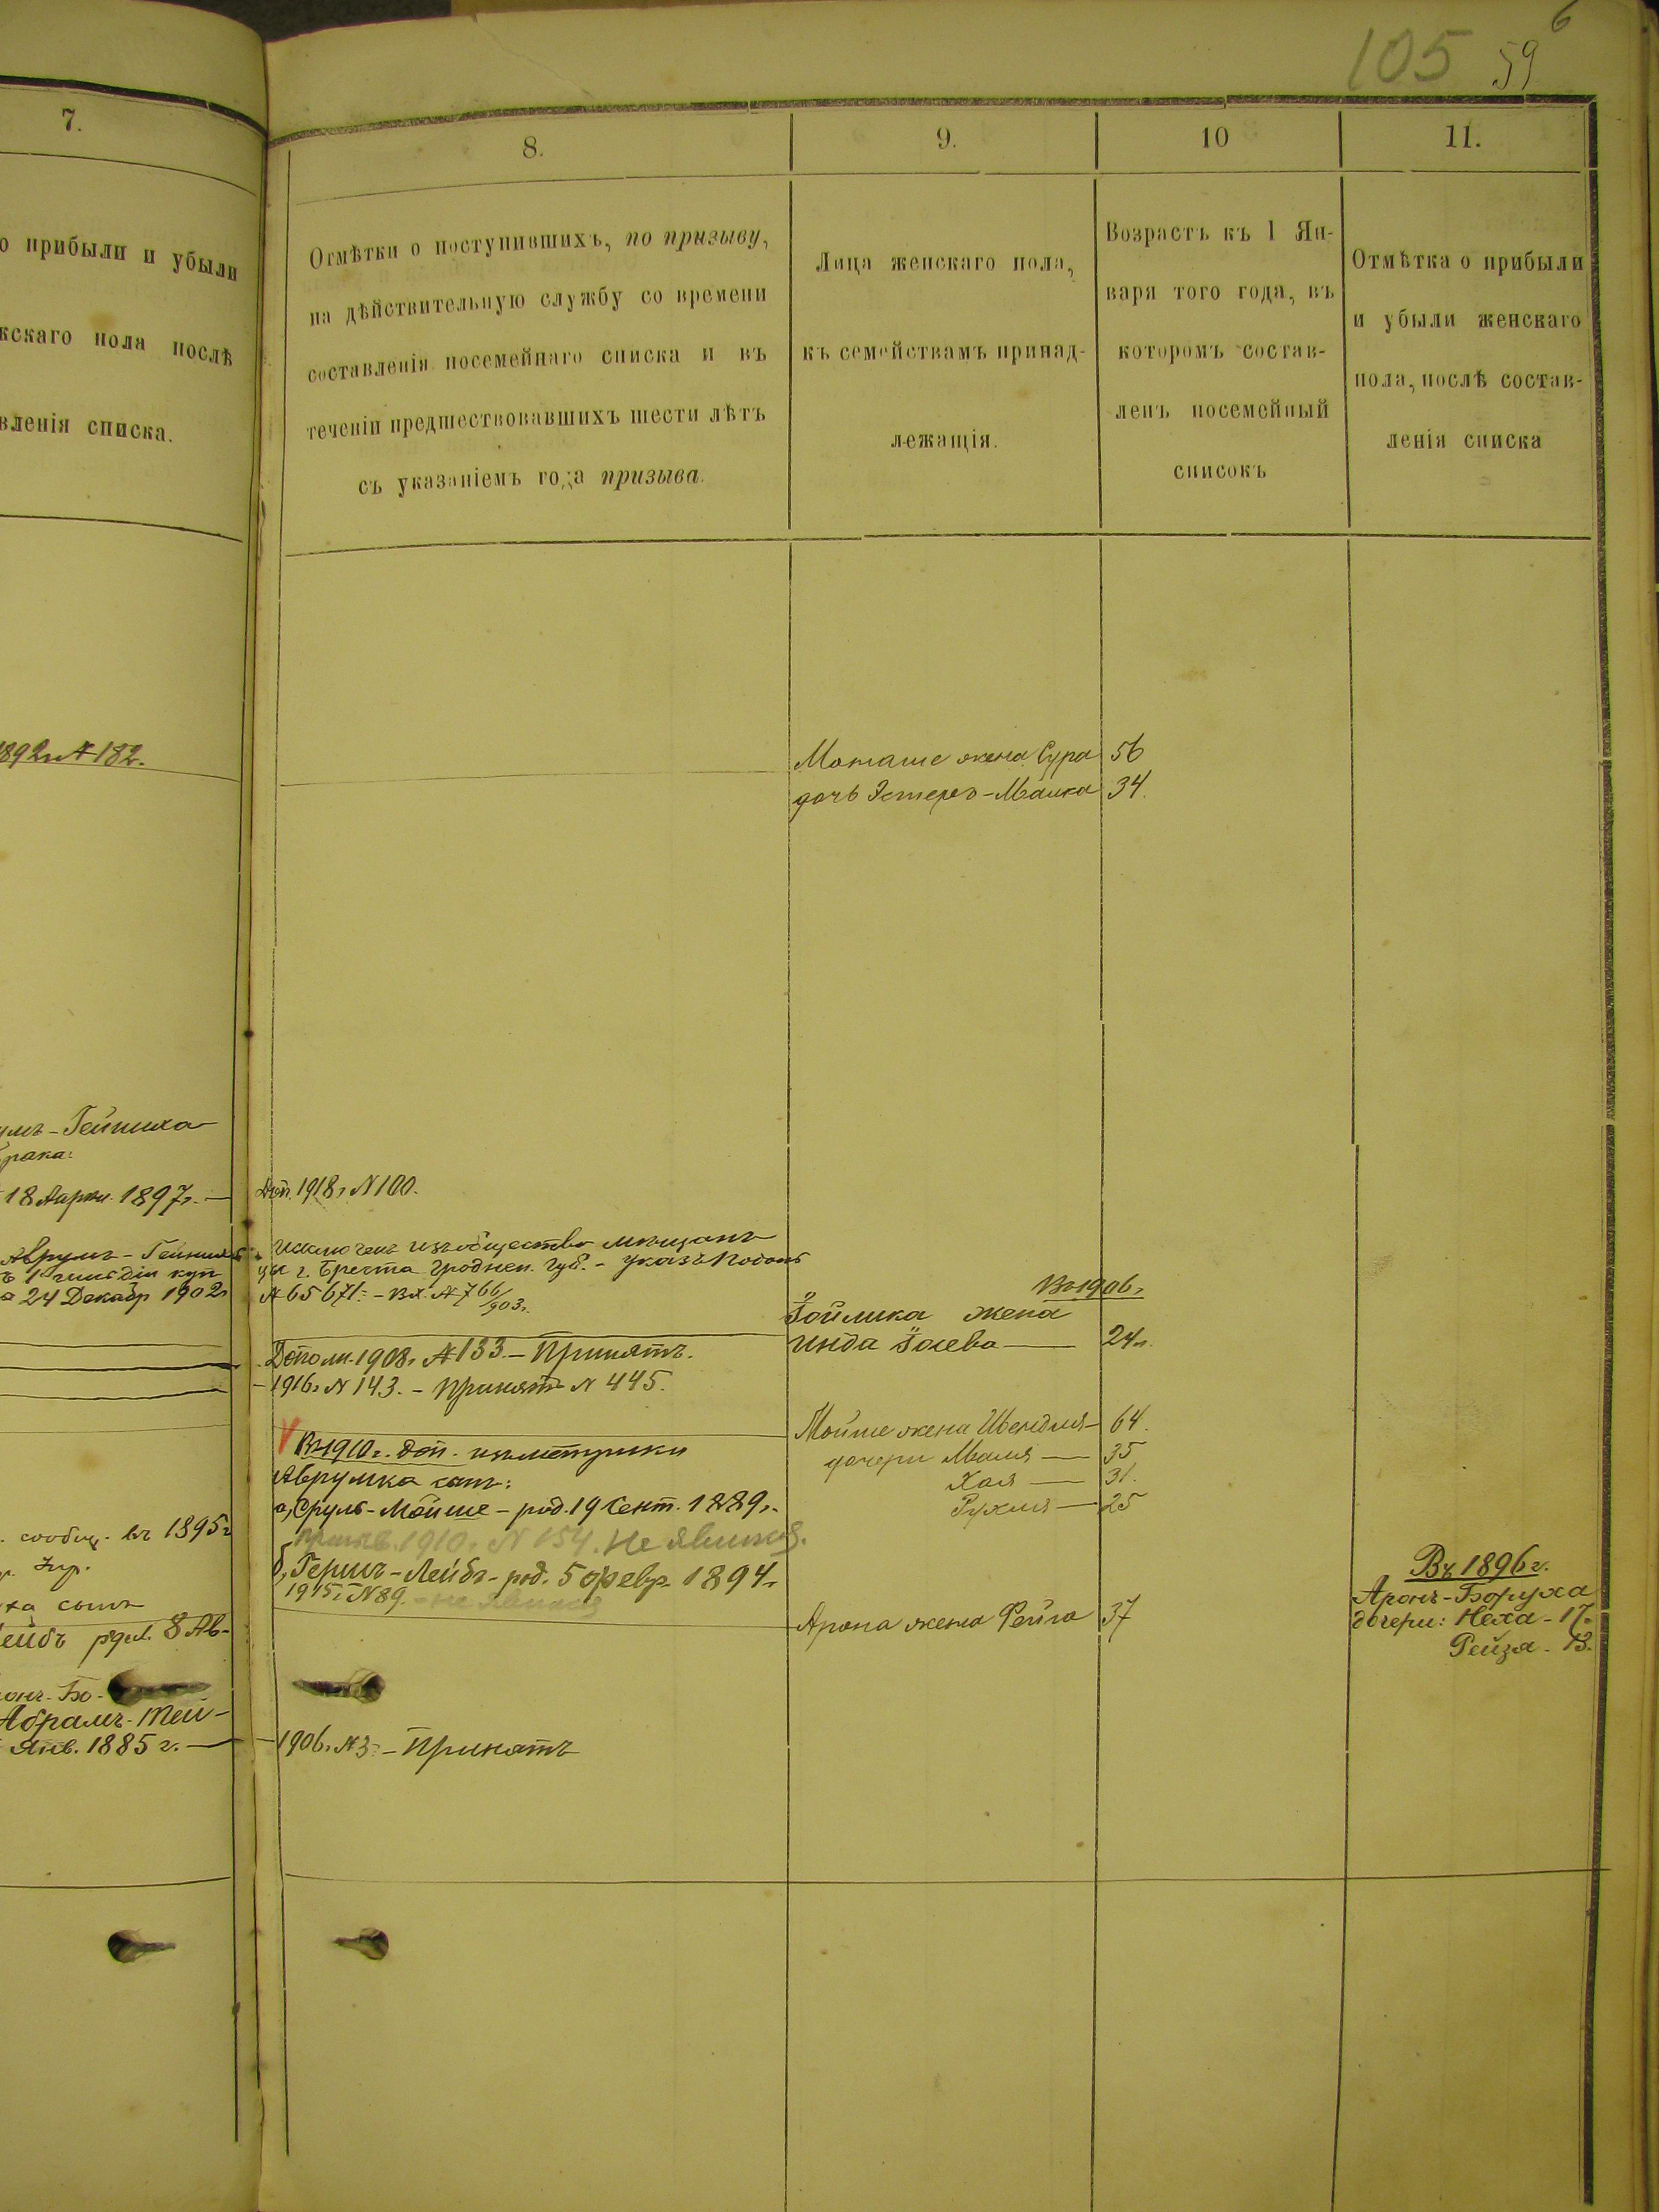 105 59 6
7.
о прибыли и убыли
жскаго пола послѣ
вленія списка.
1892 г № 182.
умъ-Гейниха
брака:
18 1897 г. —
Аврумъ-
ъ 1 гильдіи куп
24 Декабр 1902 г
сообщ. въ 1895 г
ха сынъ
Лейбъ род. 8 Ав-
онъ-Бо-
Абрамъ-Мей-
Янв. 1885 г. —
8.
Отмѣтки о поступившихъ, по призыву,
на дѣйствительную службу со времени
составленія посемейнаго списка и въ
теченіи предшествовавшихъ шести лѣтъ
съ указаніемъ года призыва.
Доп. 1918 г N 100.
Исключенъ изъ общества мѣщанъ
г. Бреста Гроднен. губ. - Указъ
№ 65671 - Вх. № 766/903 г.
Дополн. 1908 г № 133 - Принятъ.
1916 г N 143. - Принятъ N 445.
V Въ 1910 г. доп. изъ метрики
Аврумка сын:
а, Сруль-Мойше - род. 19 Сент. 1889 г.
призыв. 1910 г N 154. Не явился.
б, Гершъ-Лейбъ - род. 5 Февр. 1894 г
1915 г N 89. - не явился
1906 г № 3 - Принятъ
9.
Лица женскаго пола,
къ семействамъ принад-
лежащія.
10
Возрастъ къ 1 Ян-
варя того года, въ
которомъ состав-
ленъ посемейный
списокъ
11.
Отмѣтка о прибыли
и убыли женскаго
пола, послѣ состав-
ленія списка
жена Сура 56
дочь Эстеръ-Малка 34.
Въ 1906 г
жена
Инда — 24 г.
Мойше жена Швендля 64.
дочери Маля — 35
Хая — 31.
Рухля — 25
Арона жена Фейга 37
Въ 1896 г.
Аронъ-Боруха
дочери: Неха - 17.
Рейза - 13.